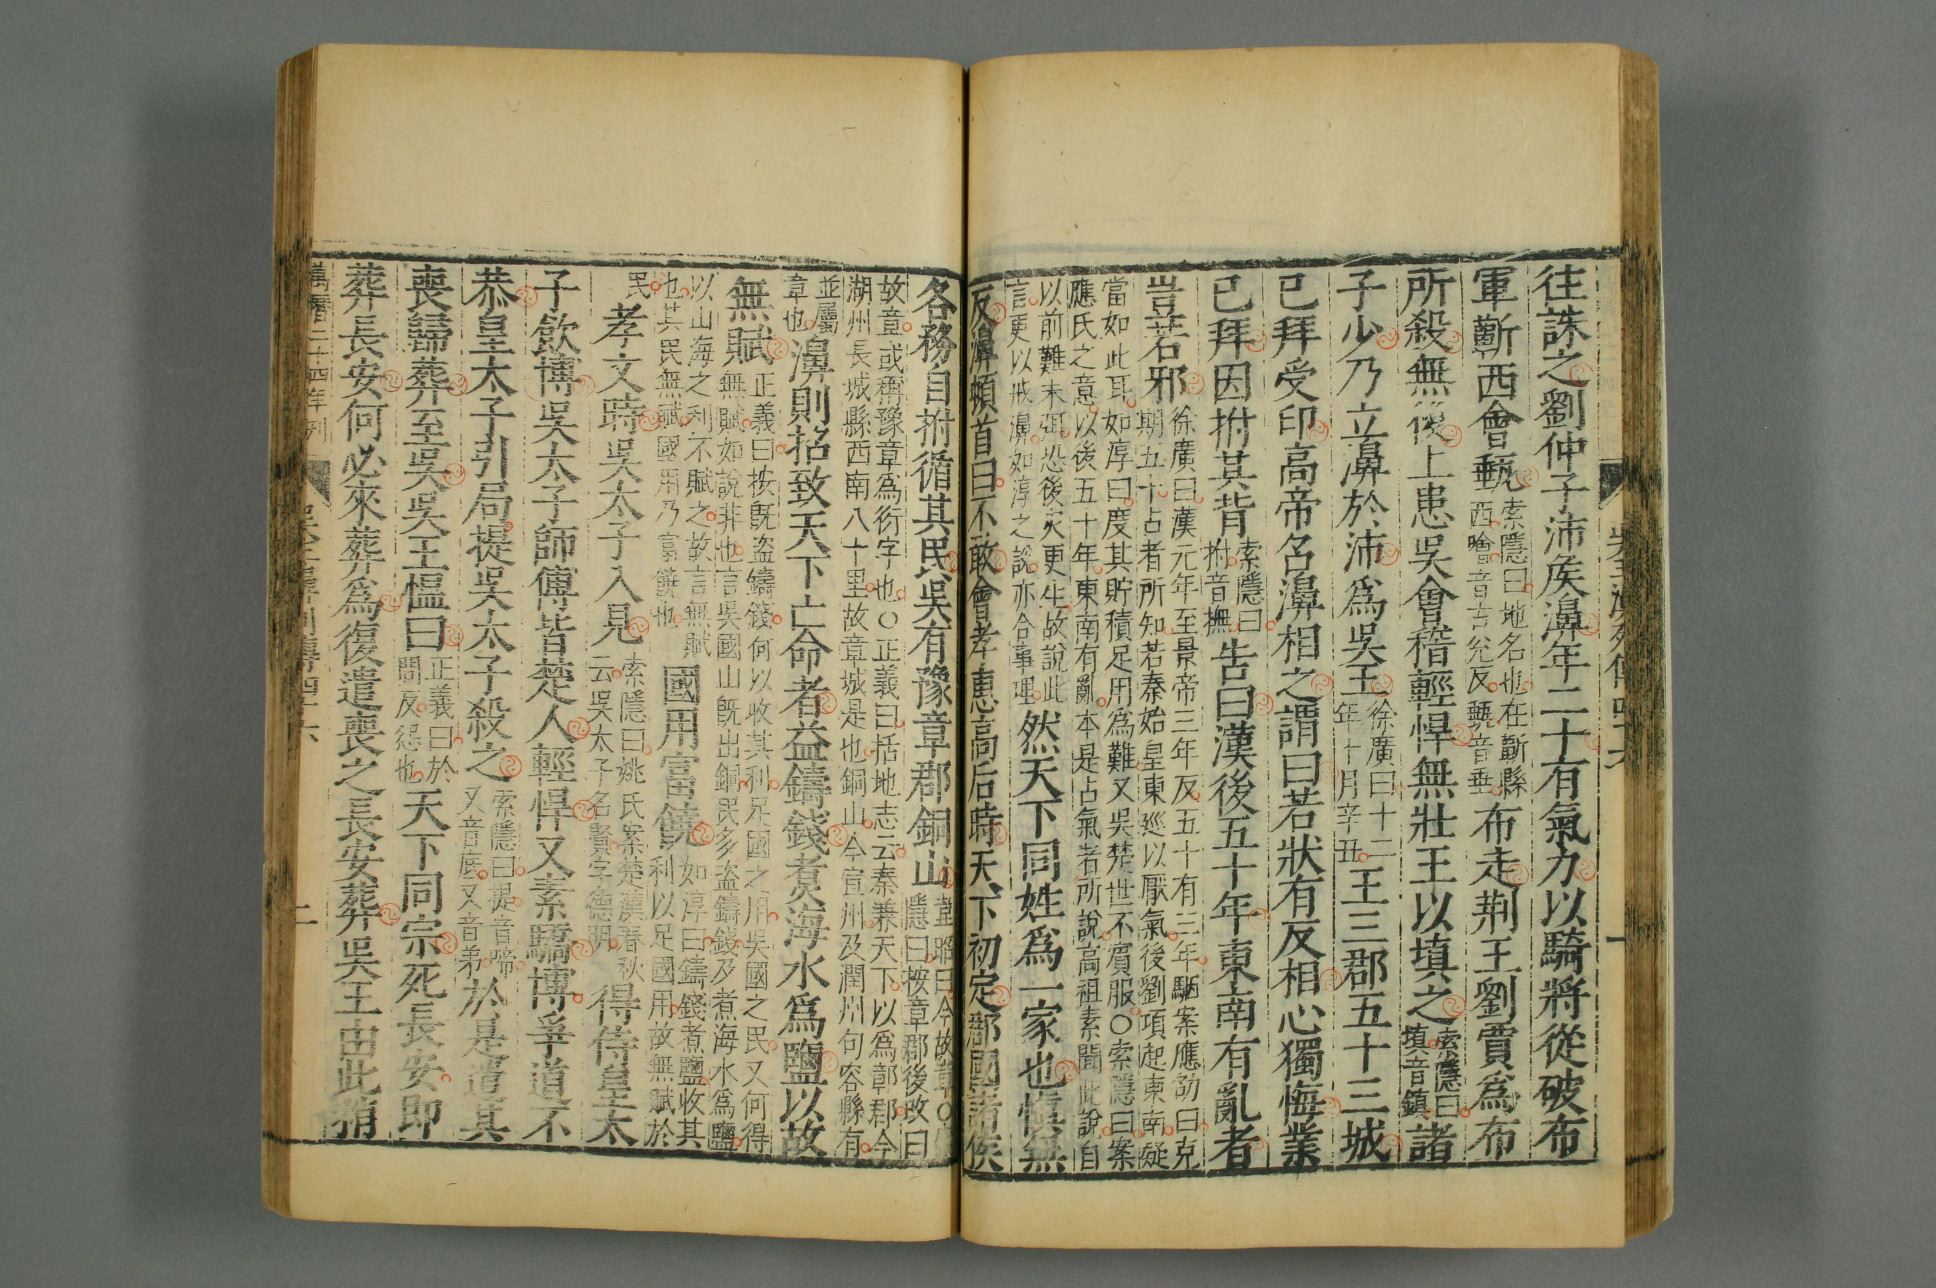 往誅之劉仲子沛矦濞年二十有氣力以騎將從破布
軍蘄西會甀索隱曰地名也在蘄縣西嶒音古兊反甀音垂布走荆王劉賈爲布
所殺無後上患吳會稽輕悍無壯王以塡之索隱曰塡音鎮諸
子少乃立濞於沛爲吳王徐廣曰十二年十月辛丑王三郡五十三城
已拜受印高帝召濞相之謂曰若狀有反相心獨悔業
已拜因拊其背索隱曰拊音撫告曰漢後五十年東南有亂者
豈若邪徐廣曰漢元年至景帝三年反五十有三年駰案應劭曰克期五十占者所知若秦始皇東廵以厭氣後劉項起東南疑
當如此耳如淳曰度其貯積足用爲難又吳楚世不賔服○索隱曰案應氏之意以後五十年東南有亂本是占氣者所說高祖素聞此說自
以前難未弭恐後灾更生故說此言更以戒濞如淳之說亦合事理然天下同姓爲一家也愼無
反濞頓首曰不敢會孝惠高后時天下初定郡國諸矦
各務自拊循其民吳有豫章郡銅山韋昭曰今故章○索隱曰按章郡後改曰
故章或稱豫章爲衍字也○正義曰括地志云秦兼天下以爲鄣郡今湖州長城縣西南八十里故章城是也銅山今宣州及潤州句容縣有
並屬章也濞則招致天下亡命者益鑄錢煮海水爲鹽以故
無賦正義曰按旣盜鑄錢何以收其利足國之用吳國之民又何得無賦如說非也言吳國山旣出銅民多盜鑄錢及煮海水爲鹽
以山海之利不賦之故言無賦也其民無賦國用乃富饒也國用富饒如淳曰鑄錢煮鹽收其利以足國用故無賦於
民孝文時吳太子入見索隱曰姚氏案楚漢春秋云吳太子名賢字德明得侍皇太
子飲博吳太子師傅皆楚人輕悍又素驕博爭道不
恭皇太子引局提吳太子殺之索隱曰提音啼又音底又音弟於是遣其
喪歸葬至吳吳王慍曰正義曰於問反怨也天下同宗死長安即
葬長安何必來葬爲復遣喪之長安葬吳王由此稍
萬曆二十四年刊
二